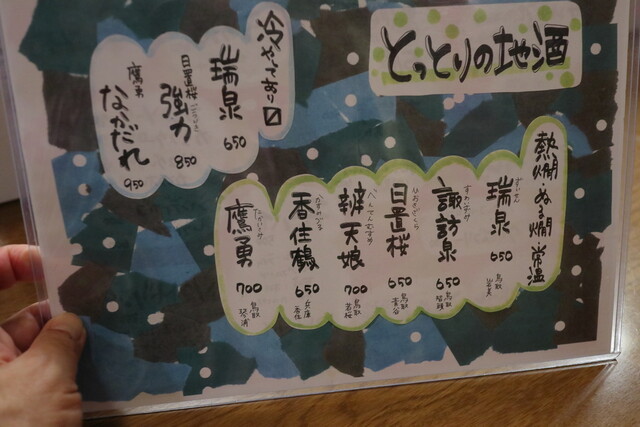 とっとりの地酒
冷やしてあり〼
瑞泉
650
日置桜
強力
850
鷹勇
なかだれ
950
熱燗・ぬる燗 常温
瑞泉
ずいせん
650
鳥取
岩美
諏訪泉
すわいずみ
650
鳥取
智頭
日置桜
ひおきざくら
650
鳥取
辨天娘
べんてんむすめ
700
鳥取
若桜
香住鶴
かすみつる
650
兵庫
香住
鷹勇
たかいさみ
700
鳥取
琴浦